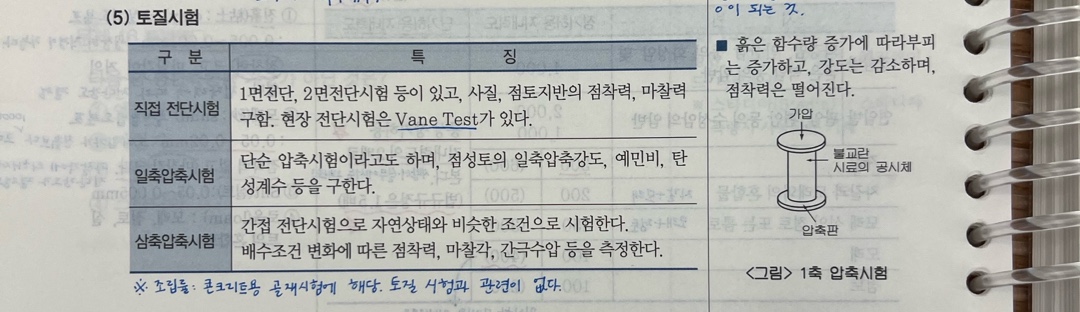 이 되는 것.
(5) 토질시험
구 분 특 징
직접 전단시험
1면전단, 2면전단시험 등이 있고, 사질, 점토지반의 점착력, 마찰력
구함. 현장 전단시험은 Vane Test가 있다.
일축압축시험
단순 압축시험이라고도 하며, 점성토의 일축압축강도, 예민비, 탄
성계수 등을 구한다.
삼축압축시험
간접 전단시험으로 자연상태와 비슷한 조건으로 시험한다.
배수조건 변화에 따른 점착력, 마찰각, 간극수압 등을 측정한다.
※ 조립률: 콘크리트용 골재시험에 해당. 토질 시험과 관련이 없다.
■ 흙은 함수량 증가에 따라부피
는 증가하고, 강도는 감소하며,
점착력은 떨어진다.
가압
불교란
시료의 공시체
압축판
<그림> 1축 압축시험